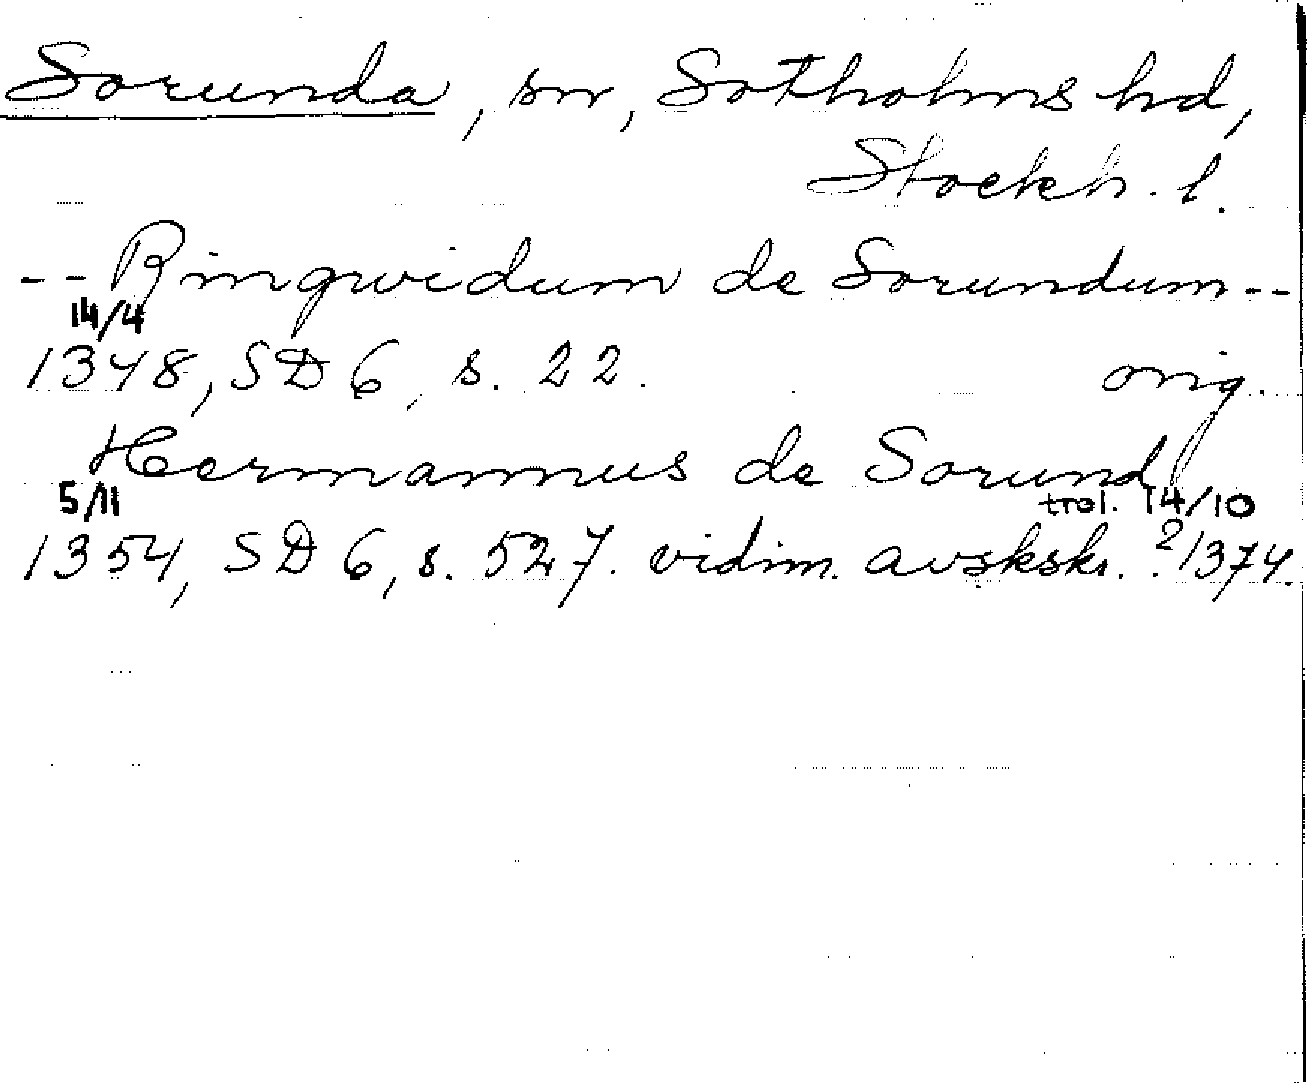 Sorunda, sn, Sotholms hd,
Stockh. l.
-- Ringwidum de Sorundum --
14/4
1348, SD 6, s. 22. orig.
Hermannus de Sorund
5/11 trol. 14/10
1354, SD 6, s. 527. vidim. avskskr. ? 1374.